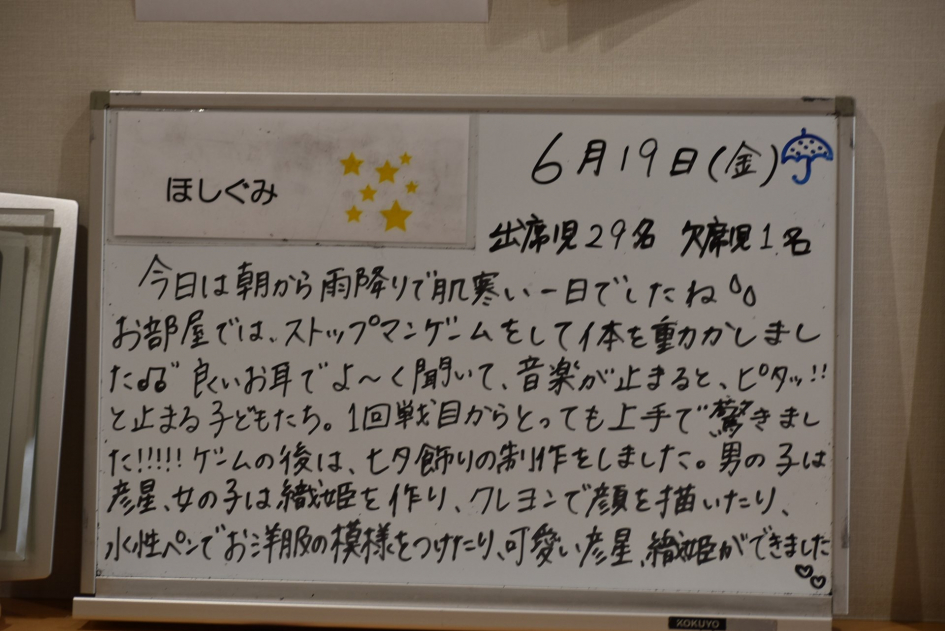 ほしぐみ
6月19日(金)
出席児29名 欠席児1名
今日は朝から雨降りで肌寒い一日でしたね
お部屋では、ストップマンゲームをして体を動かしまし
た♫ 良いお耳でよ〜く聞いて、音楽が止まると、ピタッ!!
と止まる子どもたち。1回戦目からとっても上手で驚きまし
た!!!!! ゲームの後は、七夕飾りの制作をしました。男の子は
彦星、女の子は織姫を作り、クレヨンで顔を描いたり、
水性ペンでお洋服の模様をつけたり、可愛い彦星、織姫ができました
KOKUYO